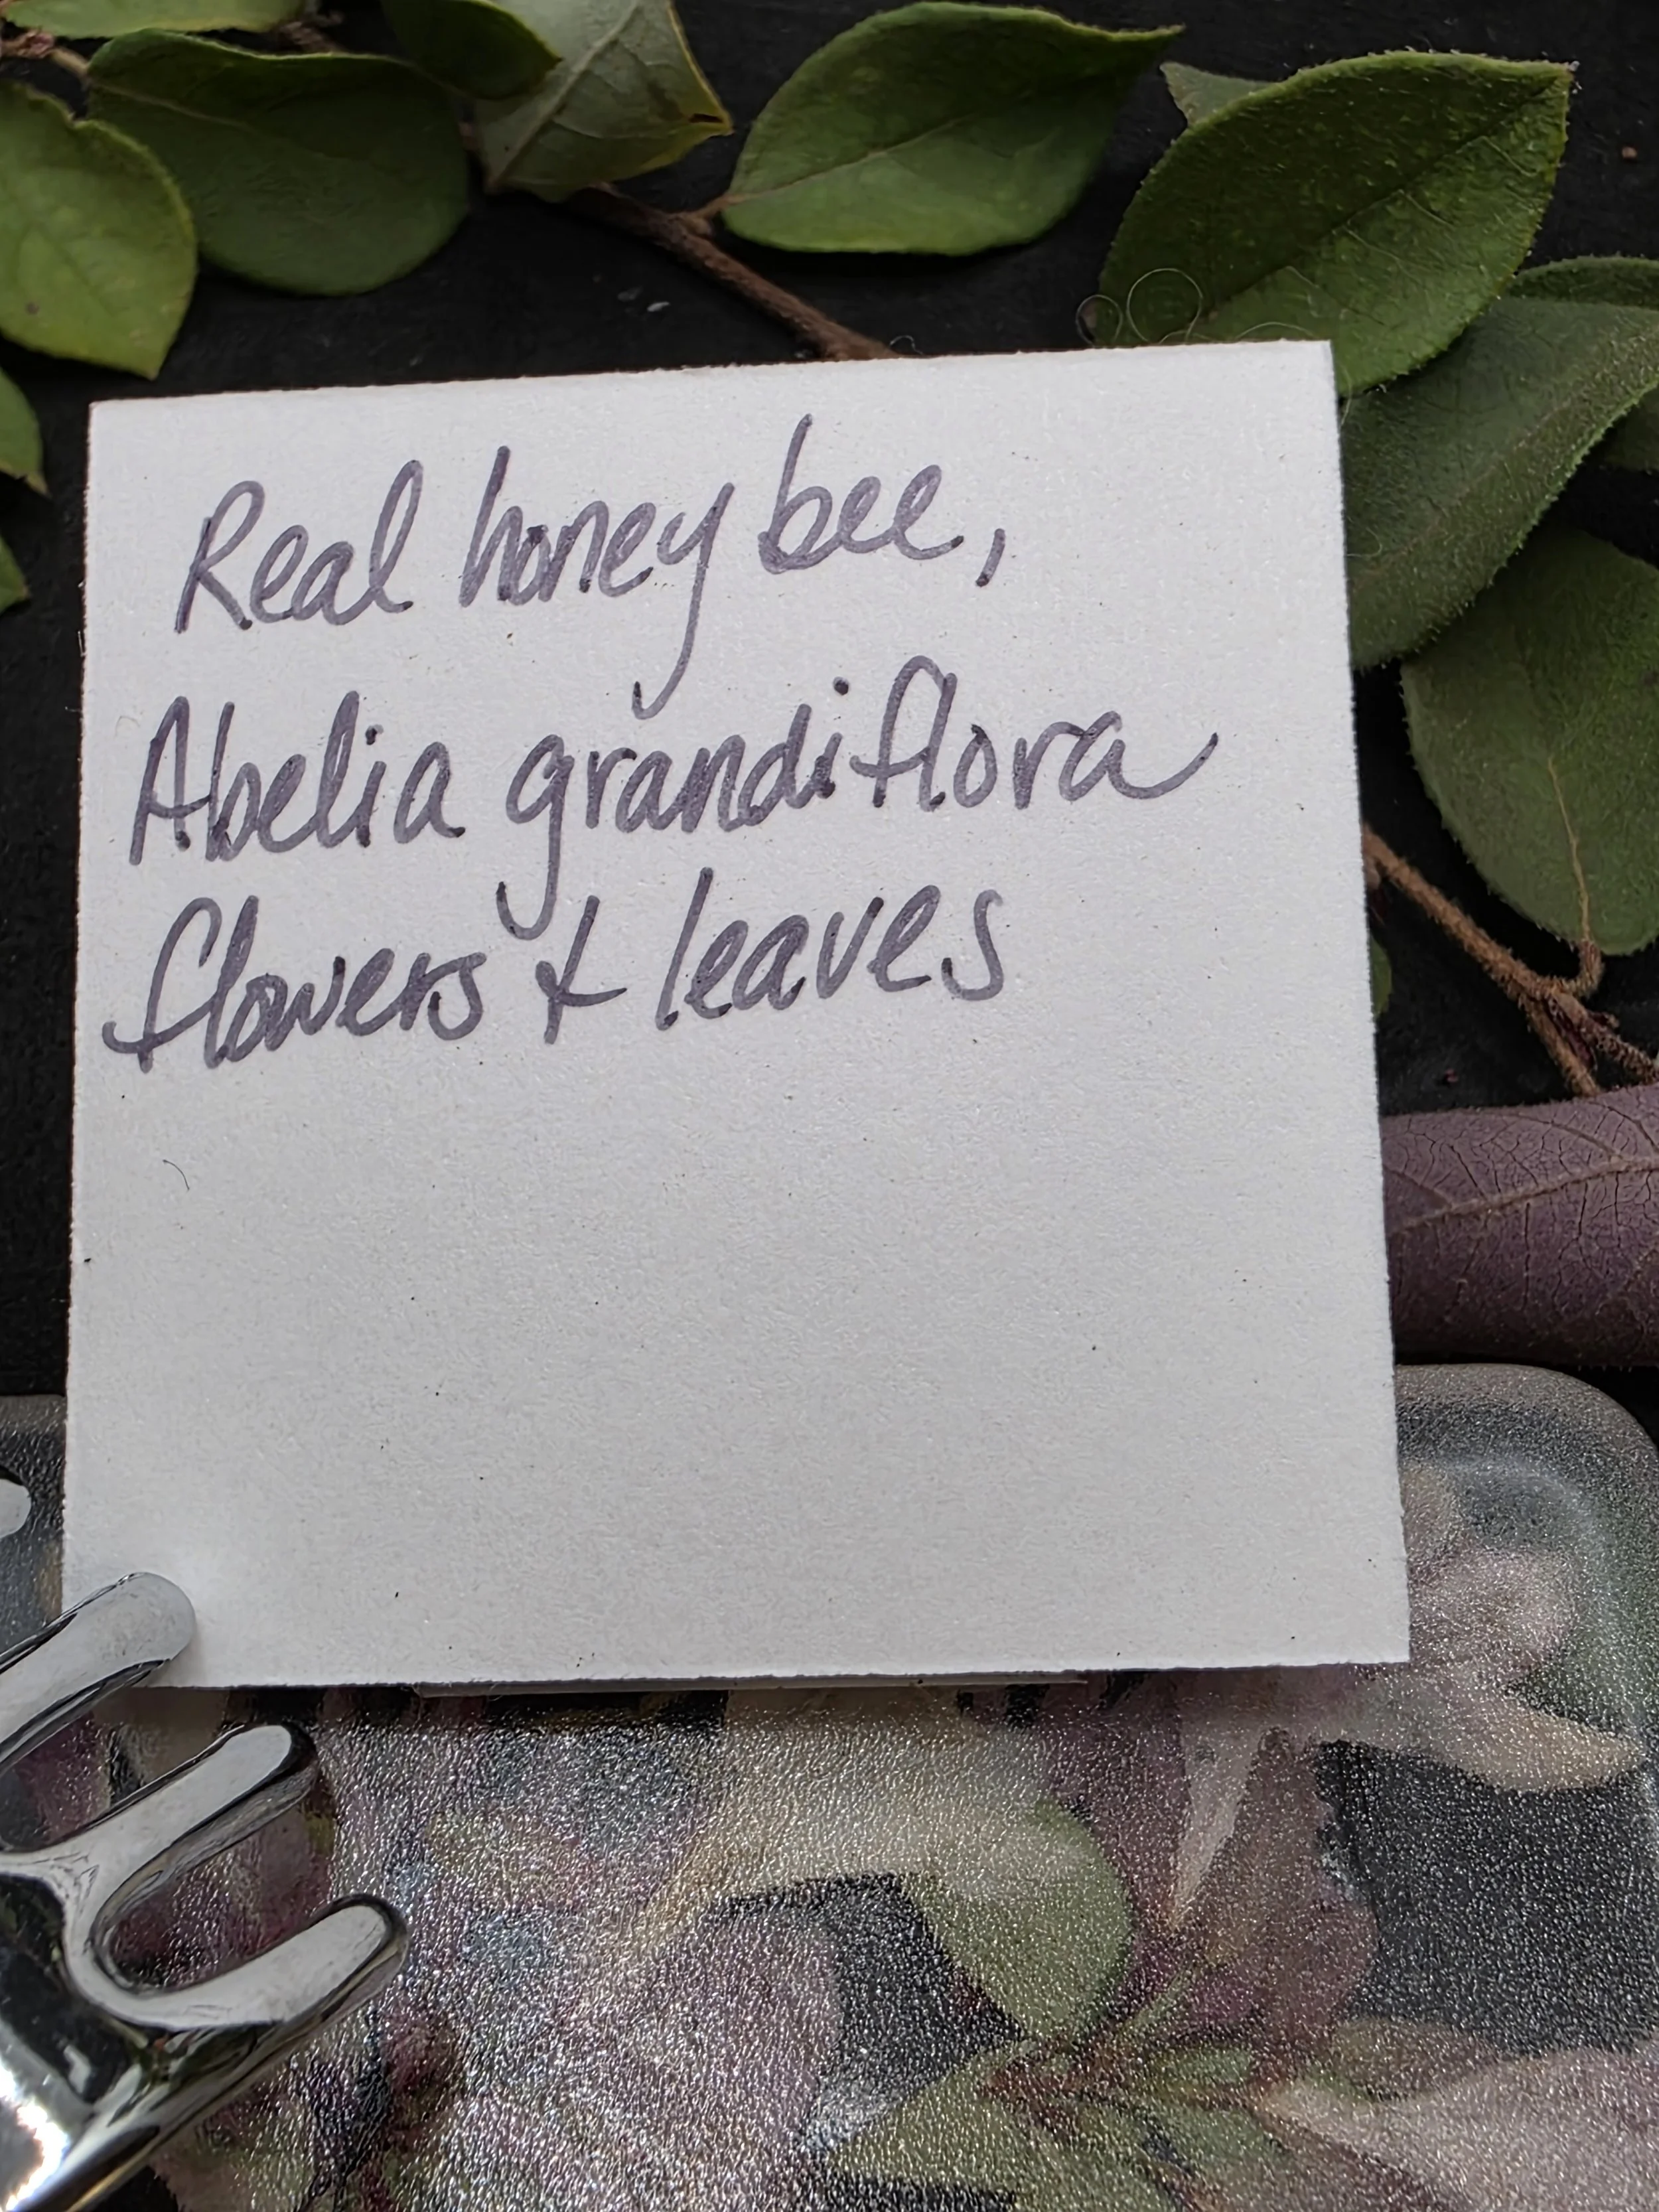 Real honey bee,
Abelia grandiflora
flowers + leaves